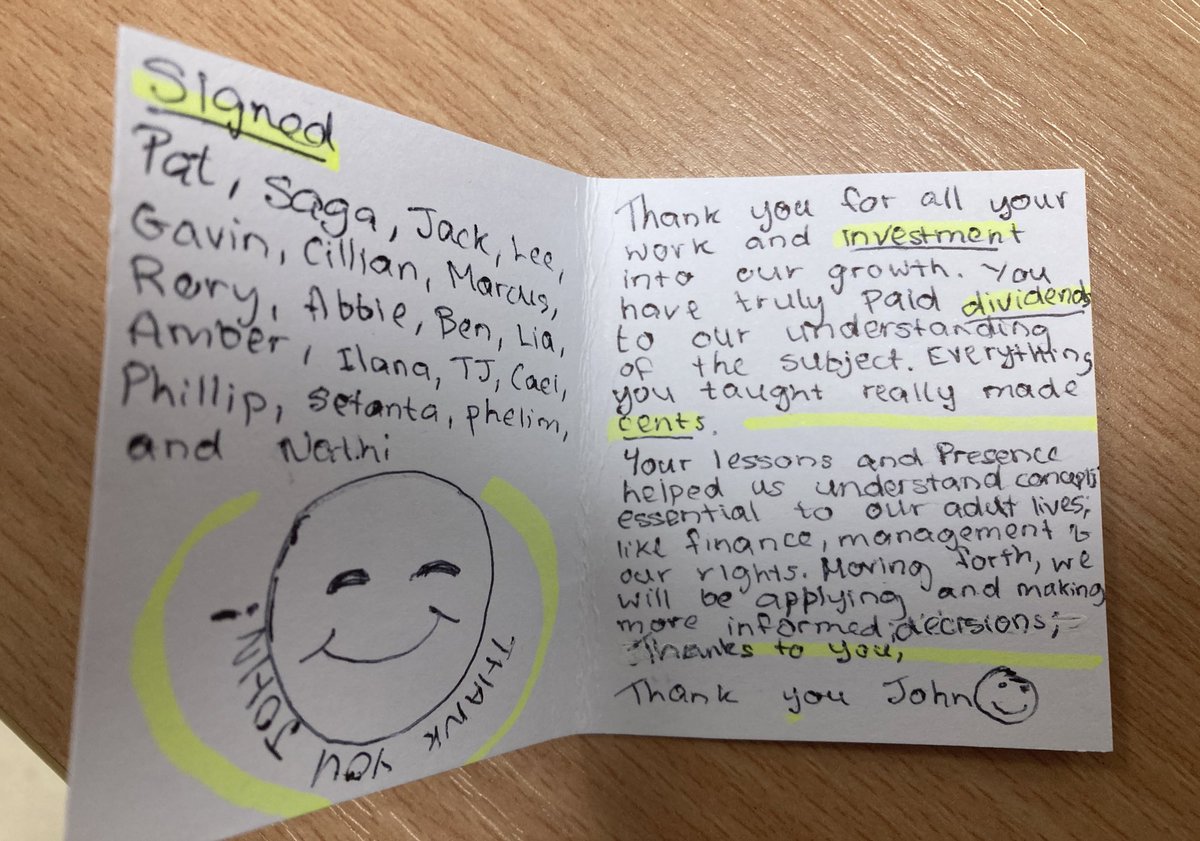 Signed
Pat, Saga, Jack, Lee,
Gavin, Cillian, Marcus,
Rory, Abbie, Ben, Lia,
Amber, Ilana, TJ, Caei,
Phillip, Setanta, phelim,
and
THANK YOU JOHN!
Thank you for all your
work and investment
into our growth. You
have truly paid dividends
to our understanding
of the subject. Everything
you taught really made
cents.
Your lessons and Presence
helped us understand concepts
essential to our adult lives;
like finance, management &
our rights. Moving forth, we
will be applying and making
more informed decisions;
Thanks to you,
Thank you John